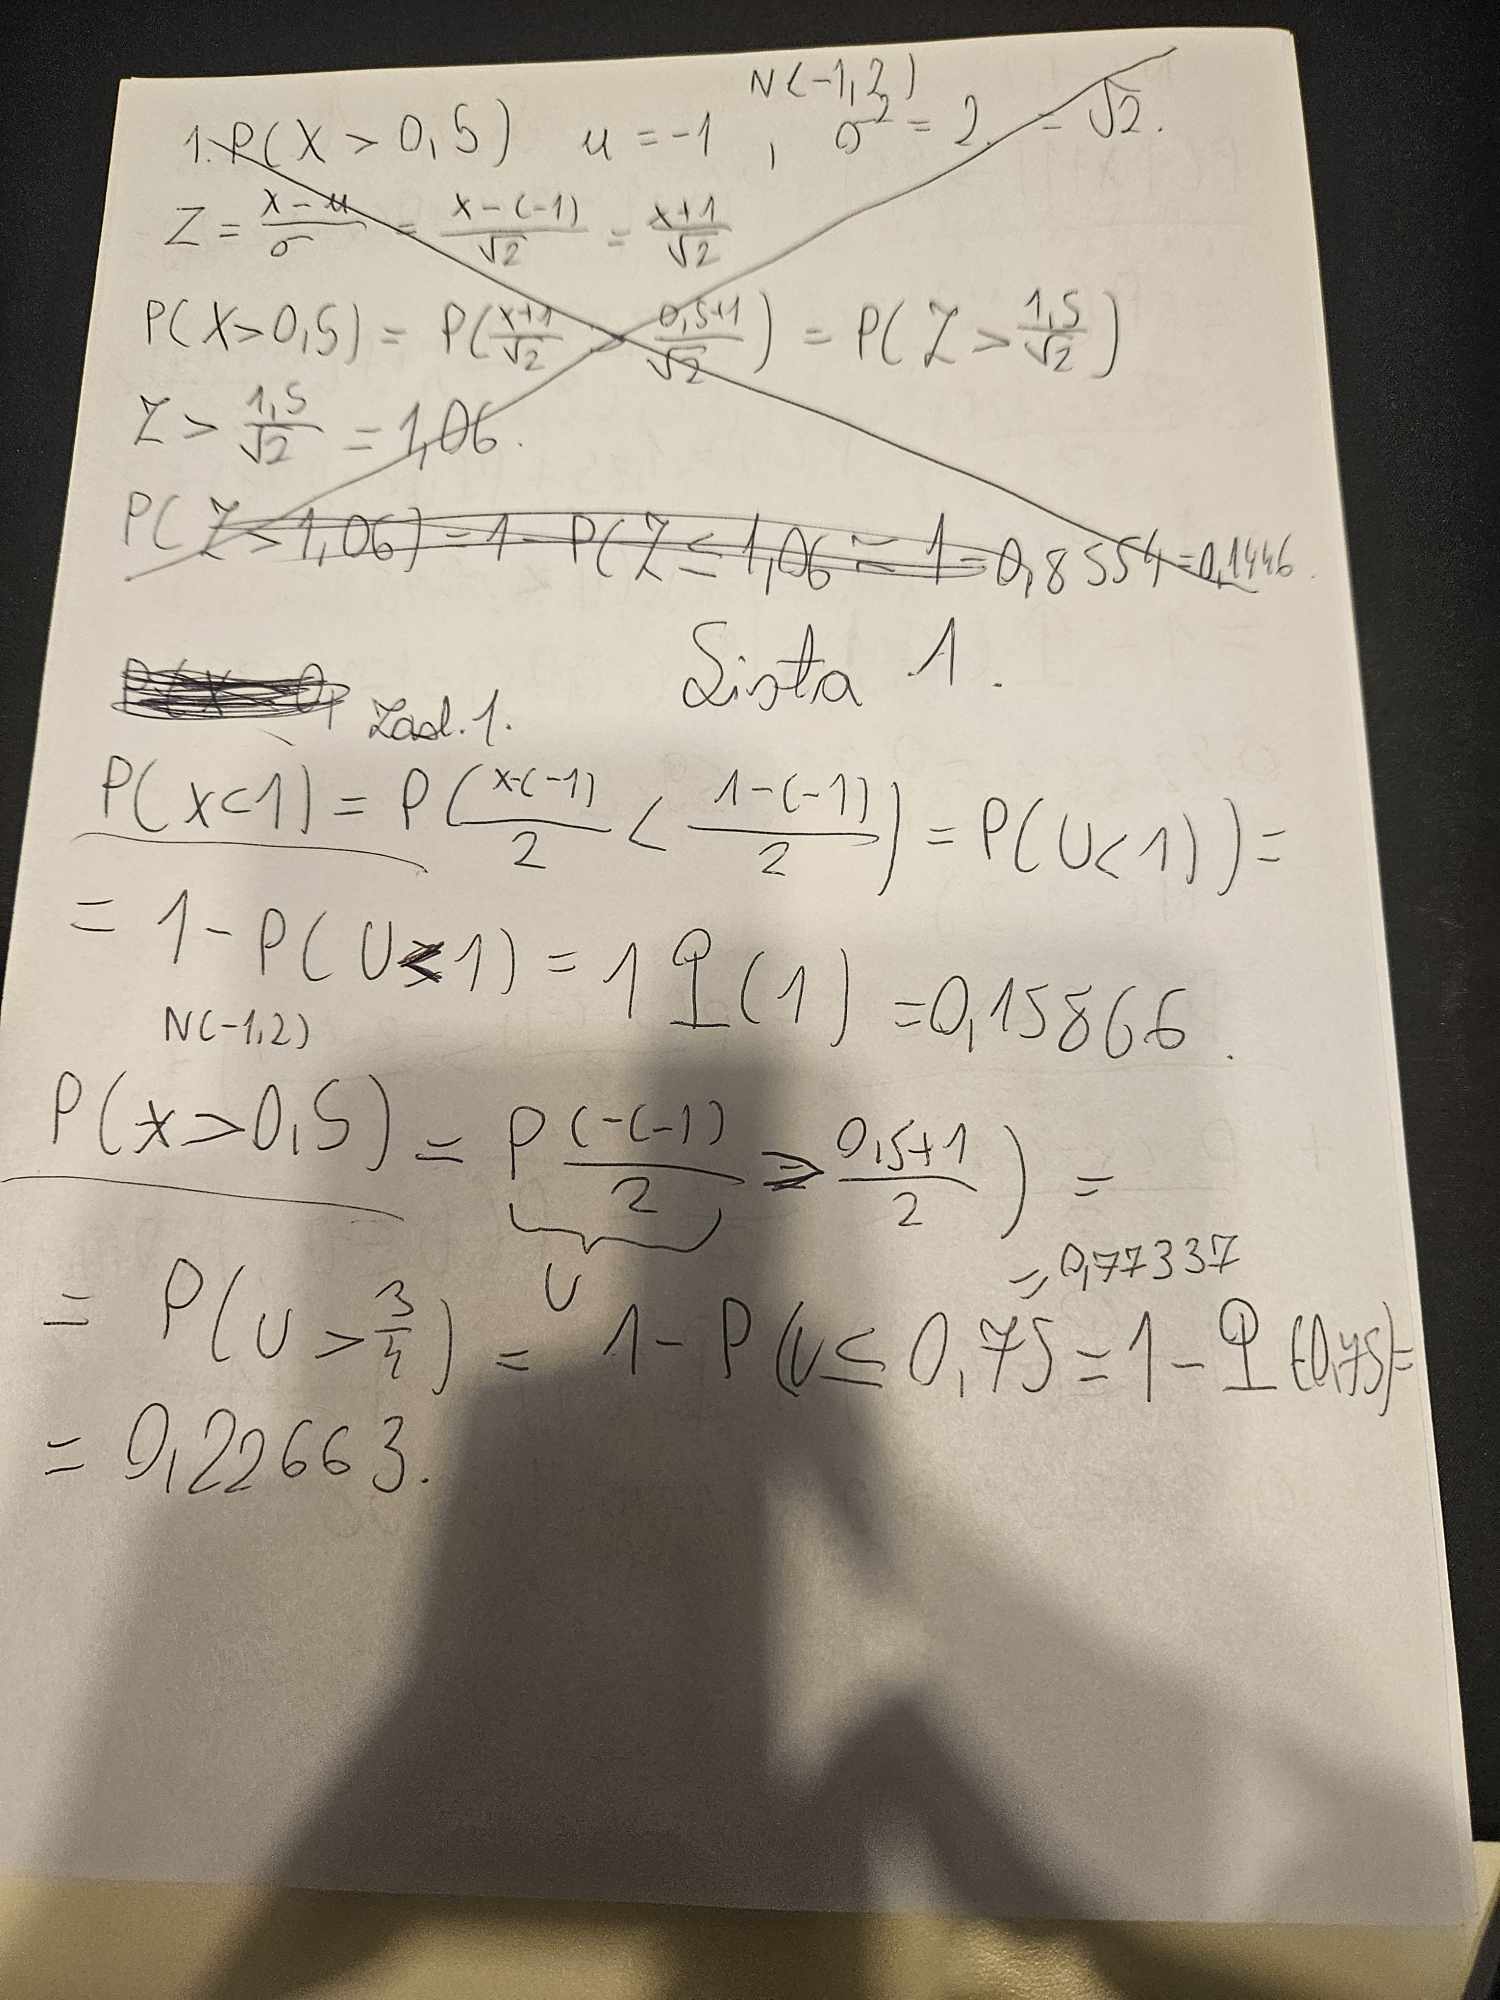 N(-1,2)
1. P(X > 0,5) u = -1 , σ² = 2 = √2.
Z = (x-u)/σ = (x-(-1))/√2 = (x+1)/√2
P(X>0,5) = P((x+1)/√2 (0,5+1)/√2) = P(Z > 1,5/√2)
Z > 1,5/√2 = 1,06.
P(Z > 1,06) = 1 - P(Z ≤ 1,06 ≈ 1 = 0,8554 = 0,1446.
Lista 1.
Zad. 1.
P(x<1) = P((x-(-1))/2 < (1-(-1))/2) = P(U<1)) =
= 1 - P(U<1) = 1 Φ(1) = 0,15866.
N(-1,2)
P(x>0,5) = P((-(-1))/2 > (0,5+1)/2) =
U
= 0,77337
= P(U > 3/4) = 1 - P(U ≤ 0,75 = 1 - Φ(0,75) =
= 0,22663.